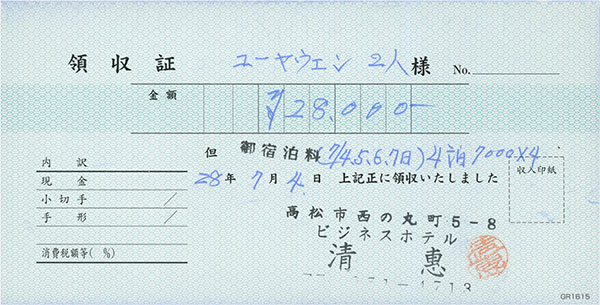 領収証 ユーヤウェン 2人様 No.
金額 ¥28,000-
但 御宿泊料(7/4.5.6.7日)4泊 7000×4
28年 7月 4日 上記正に領収いたしました
内訳
現金
小切手 /
手形 /
消費税額等( %)
収入印紙
高松市西の丸町5-8
ビジネスホテル
清恵
GR1615